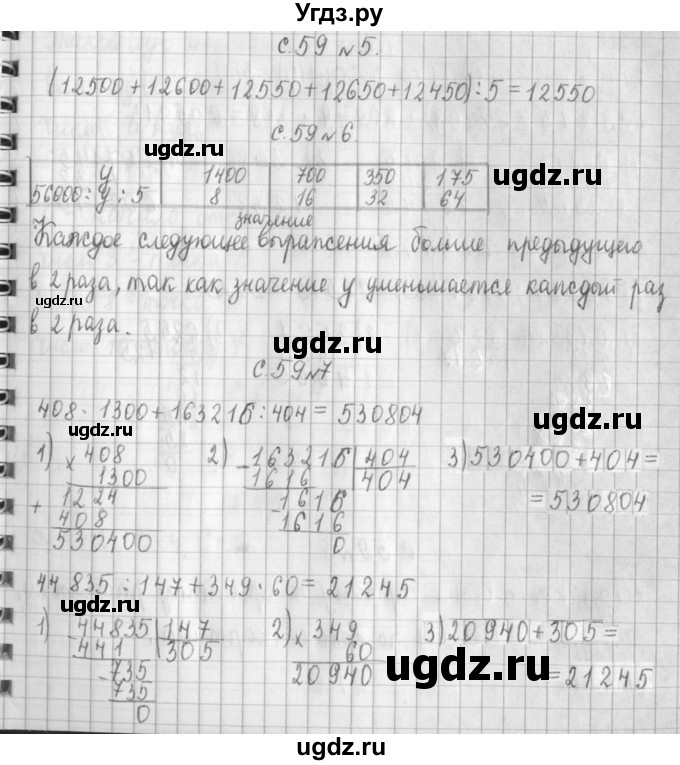 Угдз.ру
с.59 №5.
(12500+12600+12550+12650+12450):5=12550
с.59 №6.
ugdz.ru
ugdz.ru
у 1400 700 350 175
56000:у:5 8 16 32 64
значение
Каждое следующее выражения больше предыдущего
в 2 раза, так как значение у уменьшается каждый раз
ugdz.ru
в 2 раза.
ugdz.ru
с.59 №7
408·1300+163216:404=530804
ugdz.ru
1) 408 2) 163216 404 3) 530400+404=
× 1300 - 1616 404 =530804
+ 1224 - 1616
408 1616
530400 0
ugdz.ru
44835:147+349·60=21245
ugdz.ru
1) - 44835 147 2) × 349 3) 20940+305=
441 305 60 =21245
- 735 20940
735
0
ugdz.ru
ugdz.ru